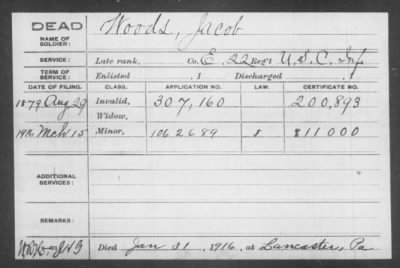 DEAD
NAME OF SOLDIER: Woods, Jacob
SERVICE: Late rank, Co. E, 22 Reg't U.S.C. Inf
TERM OF SERVICE: Enlisted , 1 Discharged , 1
DATE OF FILING. CLASS. APPLICATION NO. LAW. CERTIFICATE NO.
1879 Aug 29 Invalid, 307,160 200,893
Widow,
1916 Mch 15 Minor, 1062689 811000
ADDITIONAL SERVICES:
REMARKS:
Died Jan 31, 1916, at Lancaster, Pa